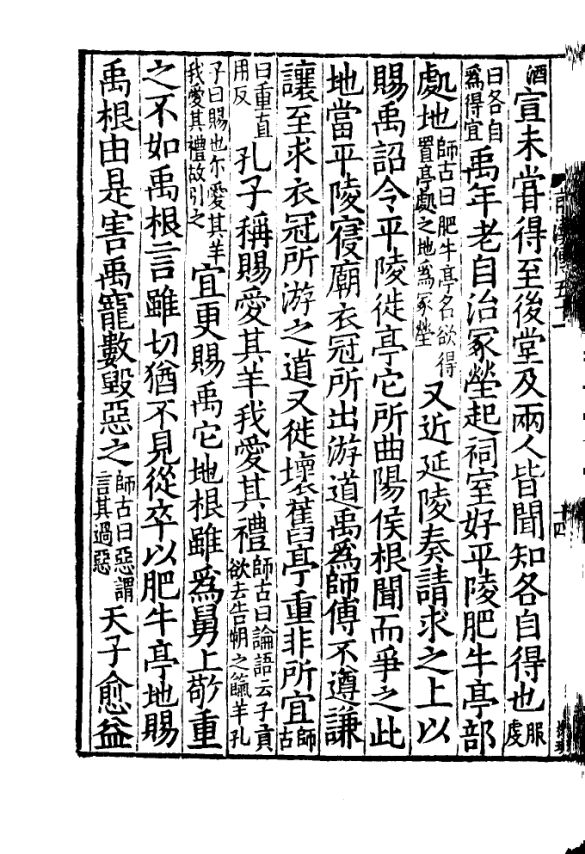 酒宣未甞得至後堂及兩人皆聞知各自得也服虔
曰各自爲得宜禹年老自治冢塋起祠室好平陵肥牛亭部
處地師古曰肥牛亭名欲得置亭處之地爲冢塋又近延陵奏請求之上以
賜禹詔令平陵徙亭它所曲陽侯根聞而爭之此
地當平陵寑廟衣冠所出游道禹爲師傅不遵謙
讓至求衣冠所游之道又徙壞舊亭重非所宜師古
曰重直用反孔子稱賜愛其羊我愛其禮師古曰論語云子貢欲去告朔之餼羊孔
子曰賜也尓愛其羊我愛其禮故引之宜更賜禹它地根雖爲舅上敬重
之不如禹根言雖切猶不見從卒以肥牛亭地賜
禹根由是害禹寵數毀惡之師古曰惡謂言其過惡天子愈益